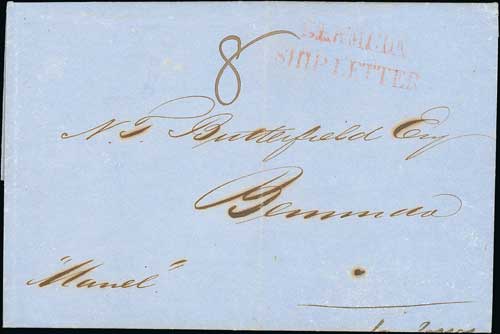 8
BERMUDA
SHIP LETTER
N. T. Butterfield Esq
Bermuda